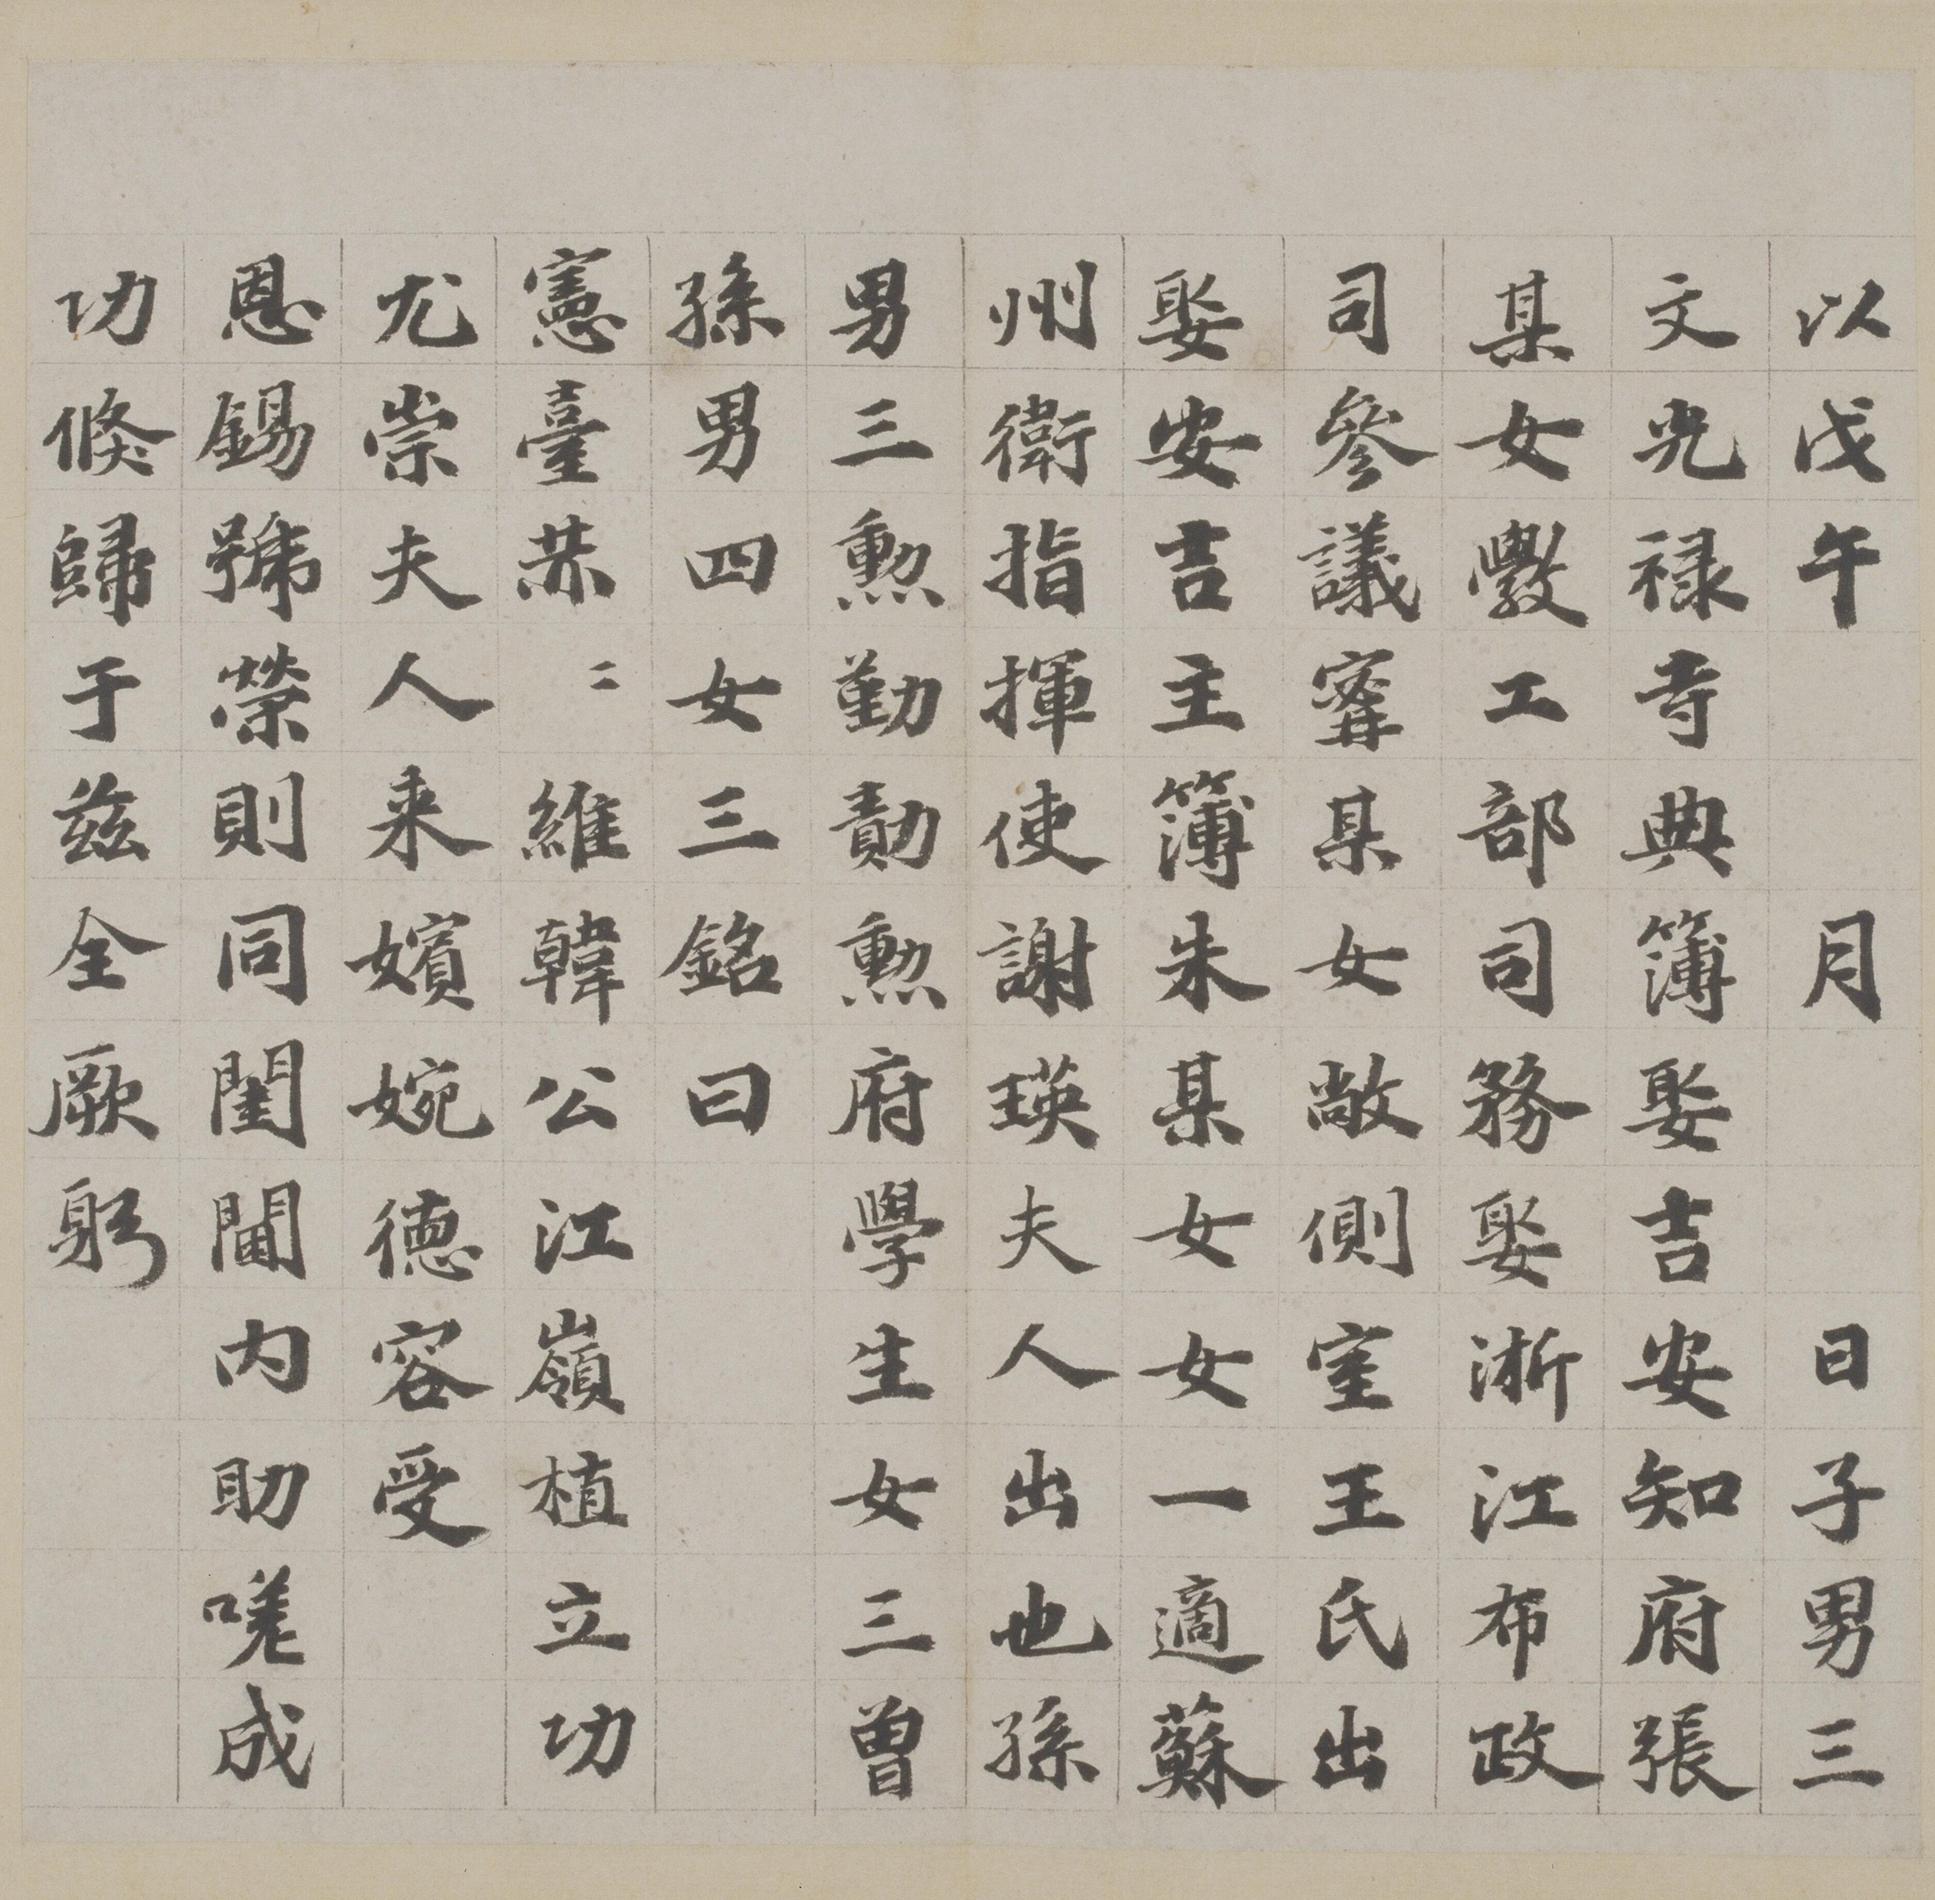 以戊午月日子男三
文光禄寺典簿娶吉安知府張
某女斅工部司務娶淅江布政
司參議寗某女敞側室王氏出
娶安吉主簿朱某女女一適蘇
州衛指揮使謝瑛夫人出也孫
男三勲勤勣勲府學生女三曾
孫男四女三銘曰
憲臺㳟〻維韓公江嶺植立功
尤崇夫人来嬪婉德容受
恩錫號榮則同閨閫内助嗟成
功倏歸于兹全厥躬